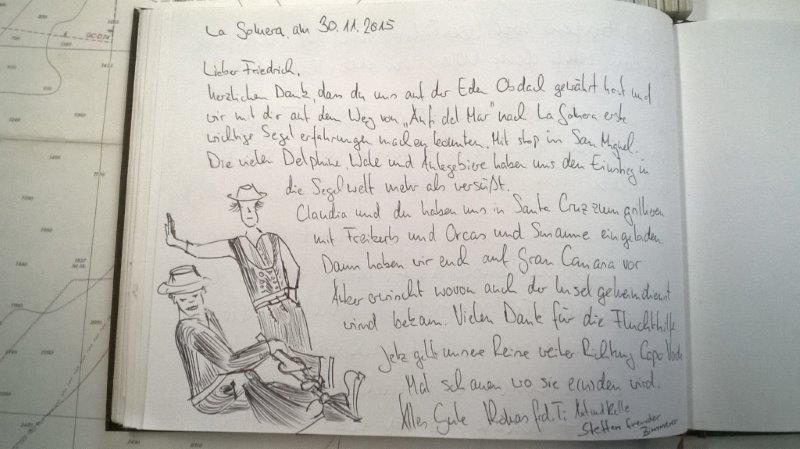 La Gomera, am 30.11.2015
Lieber Friedrich,
herzlichen Dank, dass du uns auf der Eden Obdach gewährt hast und
wir mit dir auf dem Weg von „ del Mar" nach La Gomera erste
wichtige Segelerfahrungen machen konnten. Mit stop in San Miguel.
Die vielen Delphine, Wale und haben uns den Einstieg in
die Segelwelt mehr als versüßt.
Claudia und du haben uns in Santa Cruz zum grillieren
mit und Orcas und Susanne eingeladen.
Dann haben wir euch auf Gran Canaria vor
Anker erwischt wovon auch der Insel
wind bekam. Vielen Dank für die Fluchthilfe
Jetz geht unsere Reise weiter Richtung Capo Verde
Mal schauen wo sie enden wird.
Alles Gute
Steffen Fremder
Zimmerer